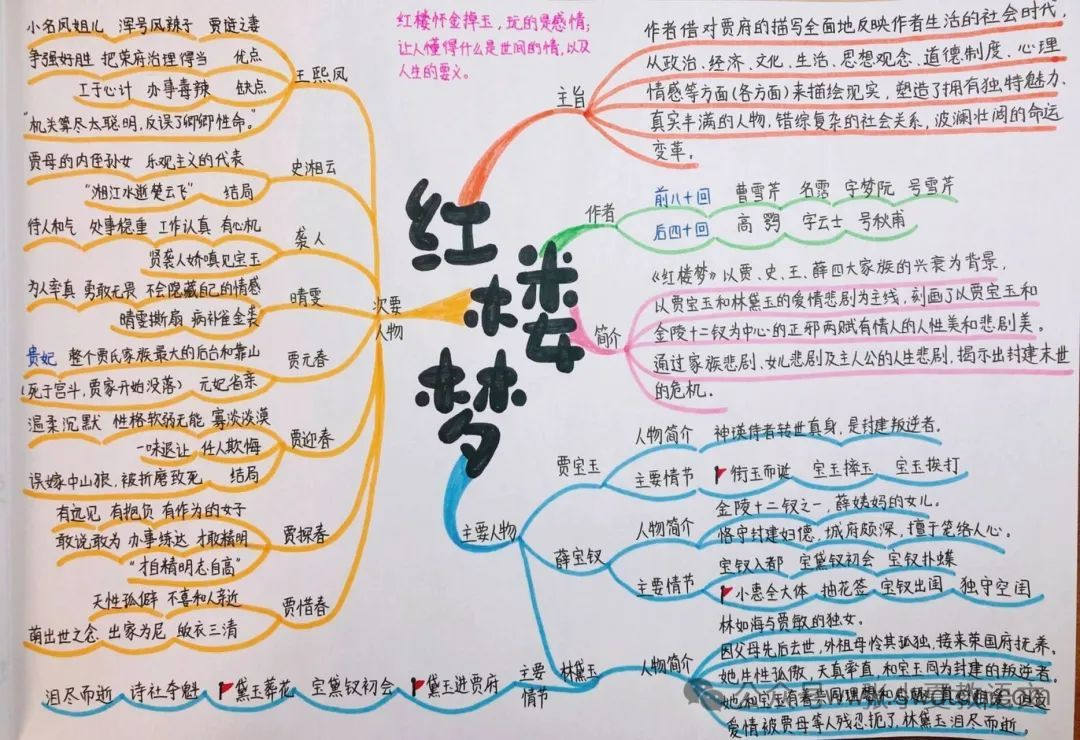 红楼梦
红楼怀金掉玉，玩的是感情；
让人懂得什么是世间的情，以及
人生的要义。
主旨
作者借对贾府的描写全面地反映作者生活的社会时代，
从政治、经济、文化、生活、思想观念、道德制度、心理
情感等方面(各方面)来描绘现实，塑造了拥有独特魅力、
真实丰满的人物，错综复杂的社会关系，波澜壮阔的命运
变革。
作者
前八十回 曹雪芹 名霑 字梦阮 号雪芹
后四十回 高鹗 字云士 号秋甫
简介
《红楼梦》以贾、史、王、薛四大家族的兴衰为背景，
以贾宝玉和林黛玉的爱情悲剧为主线，刻画了以贾宝玉和
金陵十二钗为中心的正邪两赋有情人的人性美和悲剧美。
通过家族悲剧、女儿悲剧及主人公的人生悲剧，揭示出封建末世
的危机。
主要人物
贾宝玉
人物简介 神瑛侍者转世真身，是封建叛逆者。
主要情节 衔玉而诞 宝玉摔玉 宝玉挨打
薛宝钗
人物简介
金陵十二钗之一，薛姨妈的女儿。
恪守封建妇德，城府颇深，擅于笼络人心。
主要情节
宝钗入都 宝黛钗初会 宝钗扑蝶
小惠全大体 抽花签 宝钗出闺 独守空闺
林黛玉
人物简介
林如海与贾敏的独女。
因父母先后去世，外祖母怜其孤独，接来荣国府抚养。
她生性孤傲，天真率直，和宝玉同为封建的叛逆者。
她和宝玉有着共同理想和
爱情被贾母等人残忍扼了，林黛玉泪尽而逝。
主要
情节
泪尽而逝 诗社夺魁 黛玉葬花 宝黛钗初会 黛玉进贾府
次要
人物
王熙凤
小名凤姐儿 浑号凤辣子 贾琏之妻
争强好胜 把荣府治理得当 优点
工于心计 办事毒辣 缺点
"机关算尽太聪明，反误了卿卿性命。"
史湘云
贾母的内侄孙女 乐观主义的代表
"湘江水逝楚云飞" 结局
袭人
待人和气 处事稳重 工作认真 有心机
贤袭人娇嗔见宝玉
晴雯
为人率真 勇敢无畏 不会隐藏自己的情感
晴雯撕扇 病补雀金裘
贾元春
贵妃 整个贾氏家族最大的后台和靠山
(死于宫斗，贾家开始没落) 元妃省亲
贾迎春
温柔沉默 性格软弱无能 寡淡淡漠
一味退让 任人欺侮
误嫁中山狼，被折磨致死 结局
贾探春
有远见 有抱负 有作为的女子
敢说敢为 办事练达 才敢精明
"才自精明志自高"
贾惜春
天性孤僻 不喜和人亲近
萌出世之念 出家为尼 缁衣三清